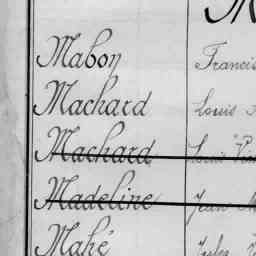 M
Mabon Francis
Machard Louis
Machard Louis
Madeline Jean
Mahé Jules